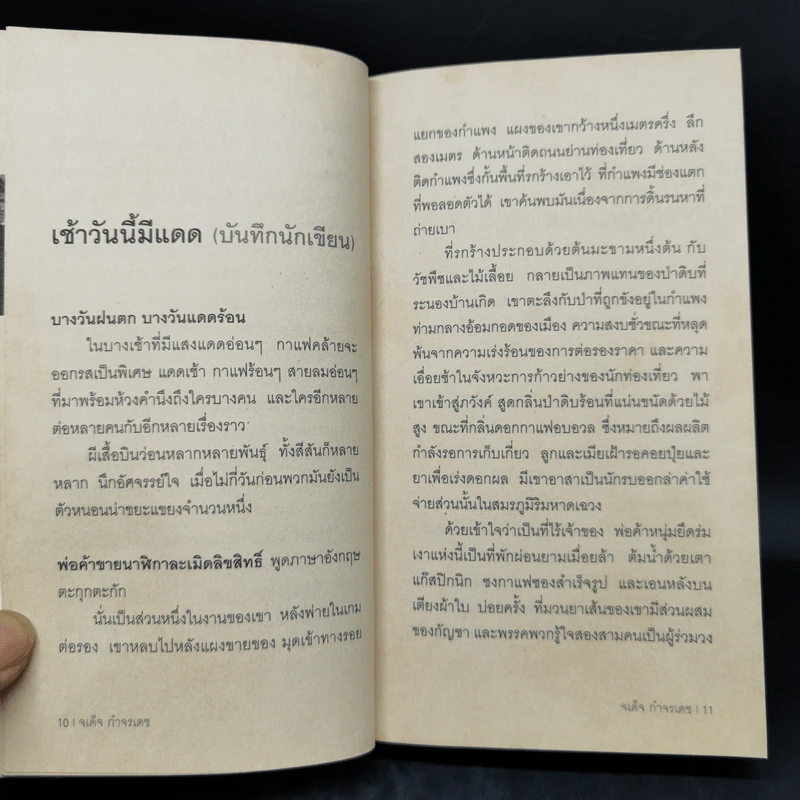 เช้าวันนี้มีแดด (บันทึกนักเขียน)
บางวันฝนตก บางวันแดดร้อน
ในบางเช้าที่มีแสงแดดอ่อนๆ กาแฟคล้ายจะ
ออกรสเป็นพิเศษ แดดเช้า กาแฟร้อนๆ สายลมอ่อนๆ
ที่มาพร้อมห้วงคำนึงถึงใครบางคน และใครอีกหลาย
ต่อหลายคนกับอีกหลายเรื่องราว
ผีเสื้อบินว่อนหลากหลายพันธุ์ ทั้งสีสันก็หลาย
หลาก นึกอัศจรรย์ใจ เมื่อไม่กี่วันก่อนพวกมันยังเป็น
ตัวหนอนน่าขยะแขยงจำนวนหนึ่ง
พ่อค้าขายนาฬิกาละเมิดลิขสิทธิ์ พูดภาษาอังกฤษ
ตะกุกตะกัก
นั่นเป็นส่วนหนึ่งในงานของเขา หลังพ่ายในเกม
ต่อรอง เขาหลบไปหลังแผงขายของ มุดเข้าทางรอย
10 | จเด็จ กำจรเดช
แยกของกำแพง แผงของเขากว้างหนึ่งเมตรครึ่ง ลึก
สองเมตร ด้านหน้าติดถนนย่านท่องเที่ยว ด้านหลัง
ติดกำแพงซึ่งกั้นพื้นที่รกร้างเอาไว้ ที่กำแพงมีช่องแตก
ที่พอลอดตัวได้ เขาค้นพบมันเนื่องจากการดิ้นรนหาที่
ถ่ายเบา
ที่รกร้างประกอบด้วยต้นมะขามหนึ่งต้น กับ
วัชพืชและไม้เลื้อย กลายเป็นภาพแทนของป่าดิบที่
ระนองบ้านเกิด เขาตะลึงกับป่าที่ถูกขังอยู่ในกำแพง
ท่ามกลางอ้อมกอดของเมือง ความสงบชั่วขณะที่หลุด
พ้นจากความเร่งร้อนของการต่อรองราคา และความ
เอื่อยช้าในจังหวะการก้าวย่างของนักท่องเที่ยว พา
เขาเข้าสู่ภวังค์ สูดกลิ่นป่าดิบร้อนที่แน่นขนัดด้วยไม้
สูง ขณะที่กลิ่นดอกกาแฟอบอวล ซึ่งหมายถึงผลผลิต
กำลังรอการเก็บเกี่ยว ลูกและเมียเฝ้ารอคอยปุ๋ยและ
ยาเพื่อเร่งดอกผล มีเขาอาสาเป็นนักรบออกล่าค่าใช้
จ่ายส่วนนั้นในสมรภูมิริมหาดเฉวง
ด้วยเข้าใจว่าเป็นที่ไร้เจ้าของ พ่อค้าหนุ่มยึดร่ม
เงาแห่งนี้เป็นที่พักผ่อนยามเมื่อยล้า ต้มน้ำด้วยเตา
แก๊สปิกนิก ชงกาแฟซองสำเร็จรูป และเอนหลังบน
เตียงผ้าใบ บ่อยครั้ง ที่มวนยาเส้นของเขามีส่วนผสม
ของกัญชา และพรรคพวกรู้ใจสองสามคนเป็นผู้ร่วมวง
จเด็จ กำจรเดช | 11